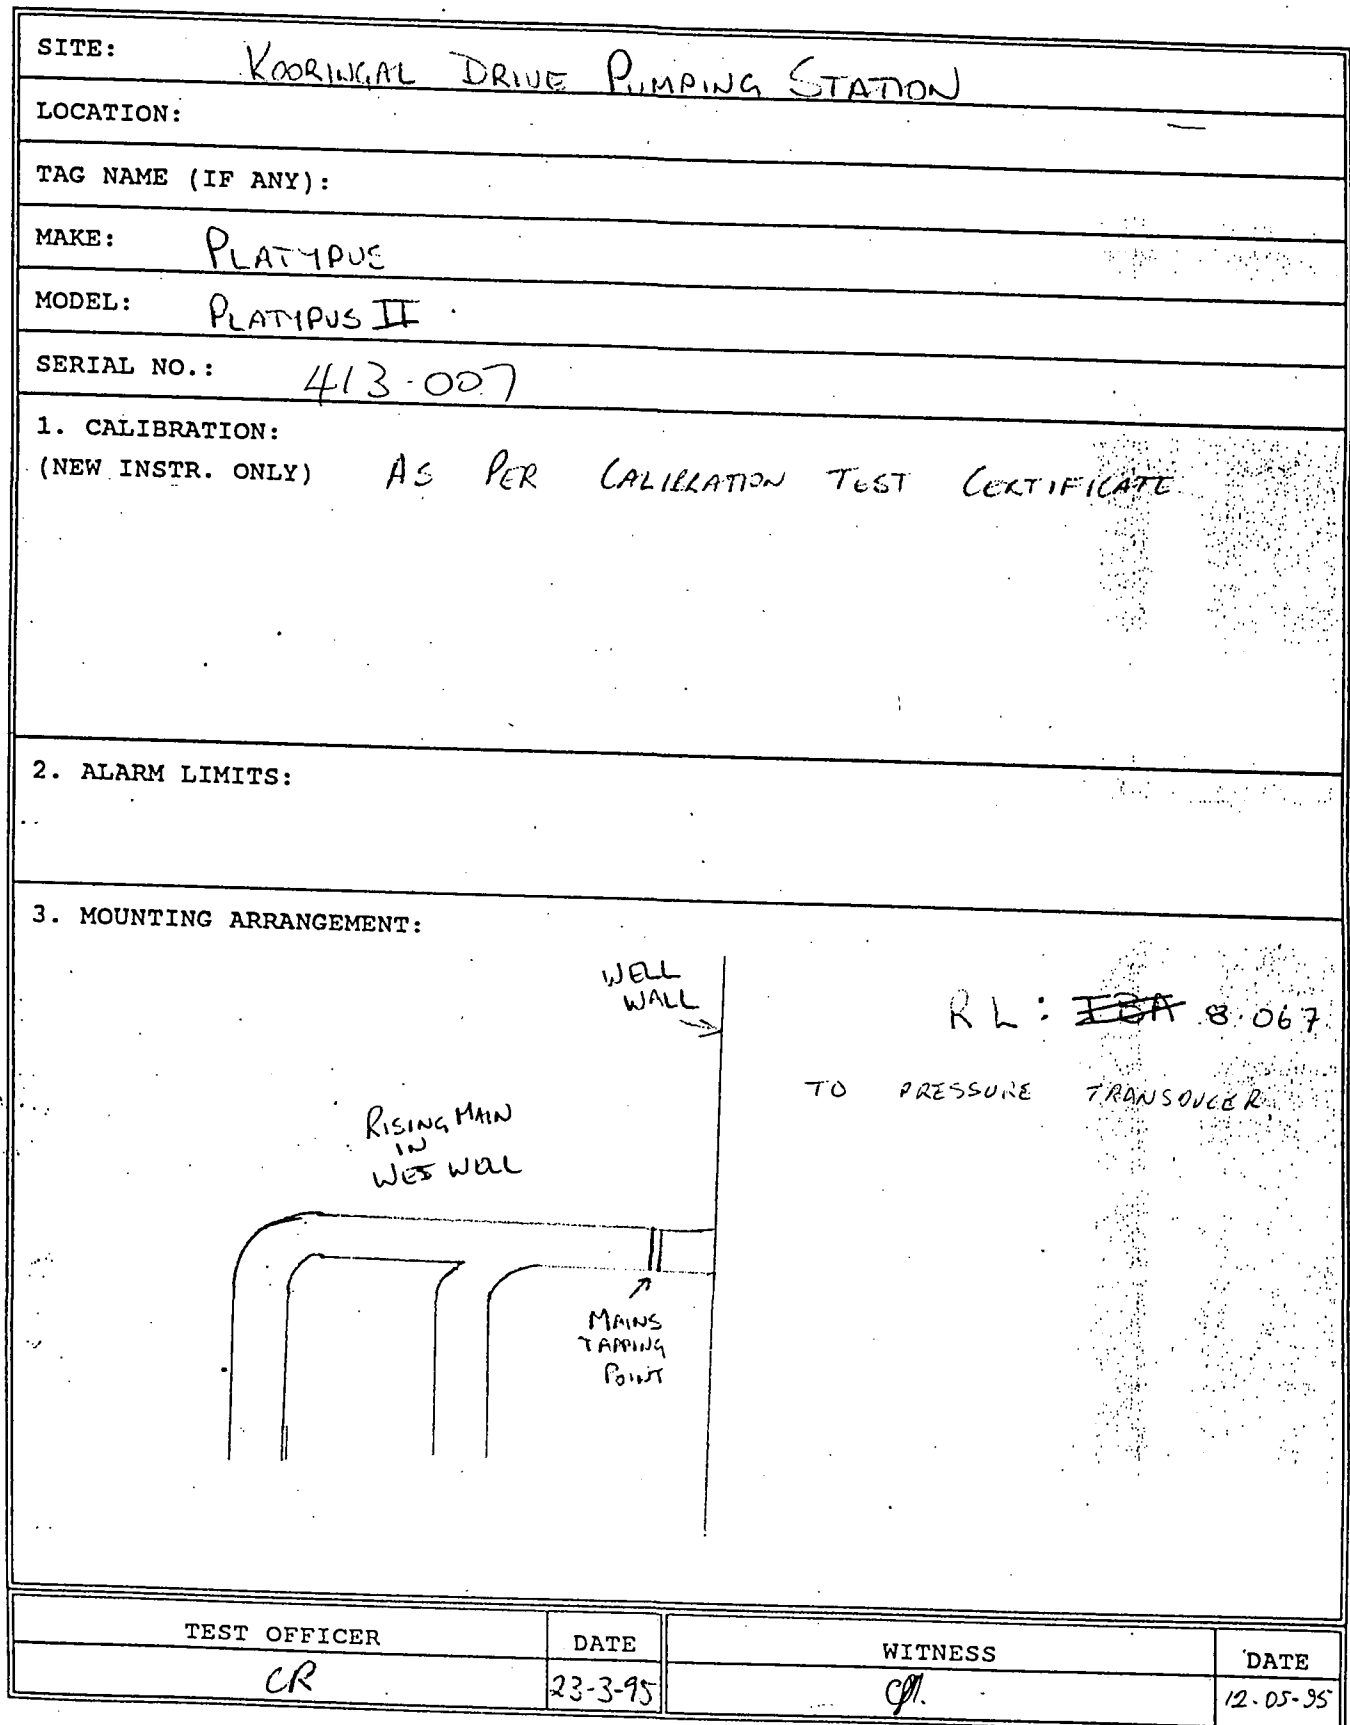 SITE: KOORINGAL DRIVE PUMPING STATION
LOCATION:
TAG NAME (IF ANY):
MAKE: PLATYPUS
MODEL: PLATYPUS II
SERIAL NO.: 413-007
1. CALIBRATION:
(NEW INSTR. ONLY) AS PER CALIBRATION TEST CERTIFICATE
2. ALARM LIMITS:
3. MOUNTING ARRANGEMENT:
WELL
WALL
RL: TBA 8.067
TO PRESSURE TRANSDUCER
RISING MAIN
IN
WET WELL
MAINS
TAPPING
POINT
TEST OFFICER DATE WITNESS DATE
CR 23-3-95 12.05-95